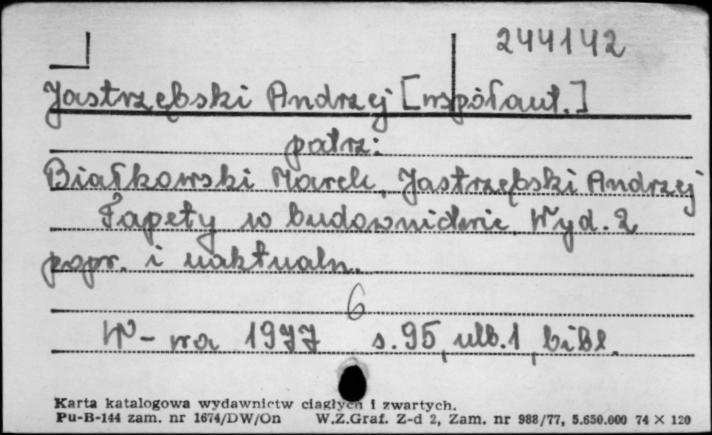 244142
Jastrzębski Andrzej [współaut.]
patrz:
Białkowski Marek, Jastrzębski Andrzej
Tapety w budownictwie Wyd. 2
popr. i uaktualn.
6
W-wa 1977 s.95, ulb.1, bibl.
Karta katalogowa wydawnictw ciągłych i zwartych.
Pu-B-144 zam. nr 1674/DW/On W.Z.Graf. Z-d 2, Zam. nr 988/77, 5.650.000 74 × 120